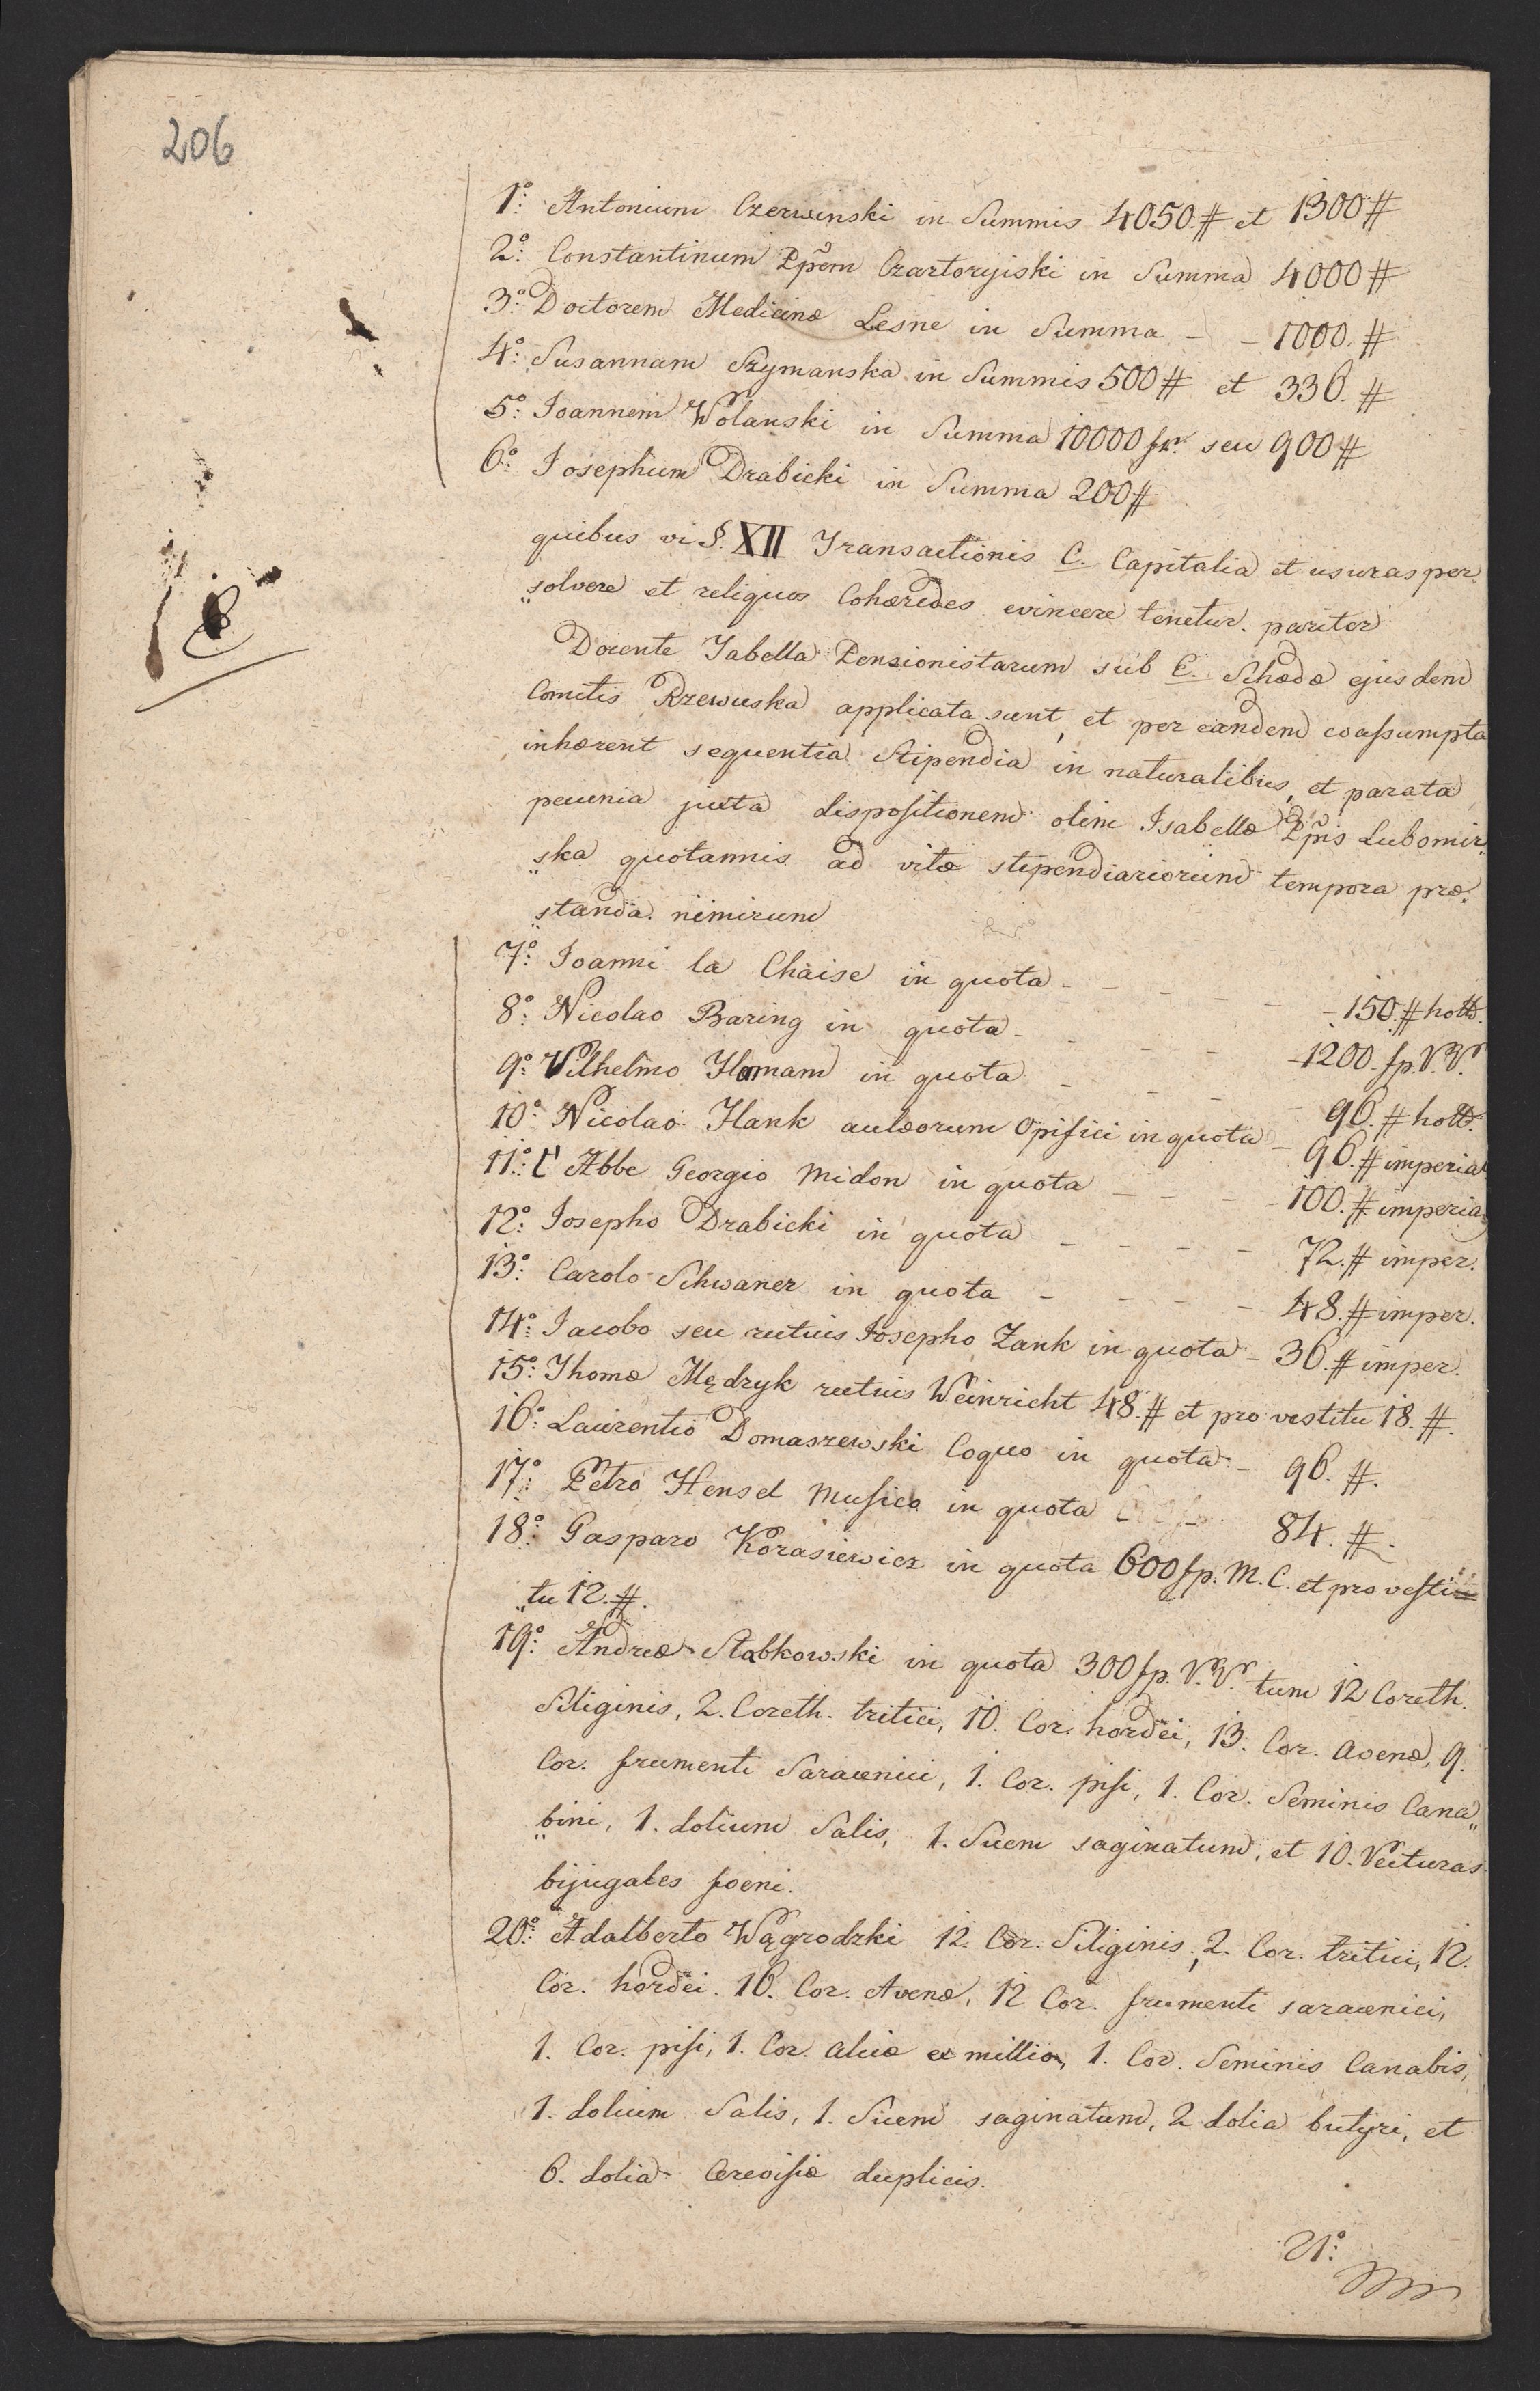 206
1º: Antonium Czerwinski in Summis 4050.# et 1300#
2º: Constantinum Ppem Czartoryiski in Summa 4000#
3º: Doctorem Medicinæ Lesne in Summa - - 1000.#
4º: Susannam Szymanska in Summis 500# et 336.#
5º: Joannem Wolanski in Summa 10000 fr. seu 900#
6º: Josephum Drabicki in Summa 200#
quibus vi §. XII Transactionis C. Capitalia et usuras per„
„solvere et reliquos Cohæredes evincere tenetur. pariter
Docente Tabella Pensionistarum sub E. Schedæ ejusdem
Comitis Rzewuska applicata sunt, et per eandem coassumpta
inhærent sequentia Stipendia in naturalibus, et parata
pecunia juxta dispositionem olim Isabellæ Ppis Lubomir„
„ska quotannis ad vitæ stipendiariorum tempora præ„
„standa. nimirum
7º: Joanni la Chaise in quota - - - - - 150.# holl.
8º: Nicolao Baring in quota - - - - 1200. fp. V.V.
9º: Vilhelmo Hamam in quota - - - - 96.# holl.
10º: Nicolao Hank aulæorum Opifici in quota - 96.# imperial
11º: L' Abbe Georgio Midon in quota - - - - 100.# imperial
12º: Josepho Drabicki in quota - - - - 72.# imper.
13º: Carolo Schwaner in quota - - - - 48.# imper.
14º: Jacobo seu rectius Josepho Zank in quota - 36.# imper.
15º: Thomæ Mędryk rectius Weinricht 48.# et pro vestitu 18.#.
16º: Laurentio Domaszewski Coquo in quota - 96.#.
17º: Petro Hensel Musico in quota 84.#.
18º: Gasparo Korasiewicz in quota 600 fp. M.C. et pro vesti=
„tu 12.#.
19º: Andreæ Stabkowski in quota 300 fp. V.V. tum 12 Coreth.
Siliginis, 2. Coreth. tritici, 10. Cor. hordei, 13. Cor. Avenæ, 9.
Cor. frumenti Saracenici, 1. Cor. pisi, 1. Cor. Seminis Cana„
„bini, 1. dolium Salis, 1. Suem saginatum, et 10. Vecturas
bijugales foeni.
20º: Adalberto Wągrodzki 12. Cor. Siliginis, 2. Cor. tritici, 12.
Cor. hordei. 16. Cor. Avenæ, 12 Cor. frumenti saracenici,
1. Cor. pisi, 1. Cor. aliciæ ex millio, 1. Cor. Seminis Canabis,
1. dolium Salis, 1. Suem saginatum, 2 dolia butyri, et
6. dolia Cerevisiæ duplicis.
21º: